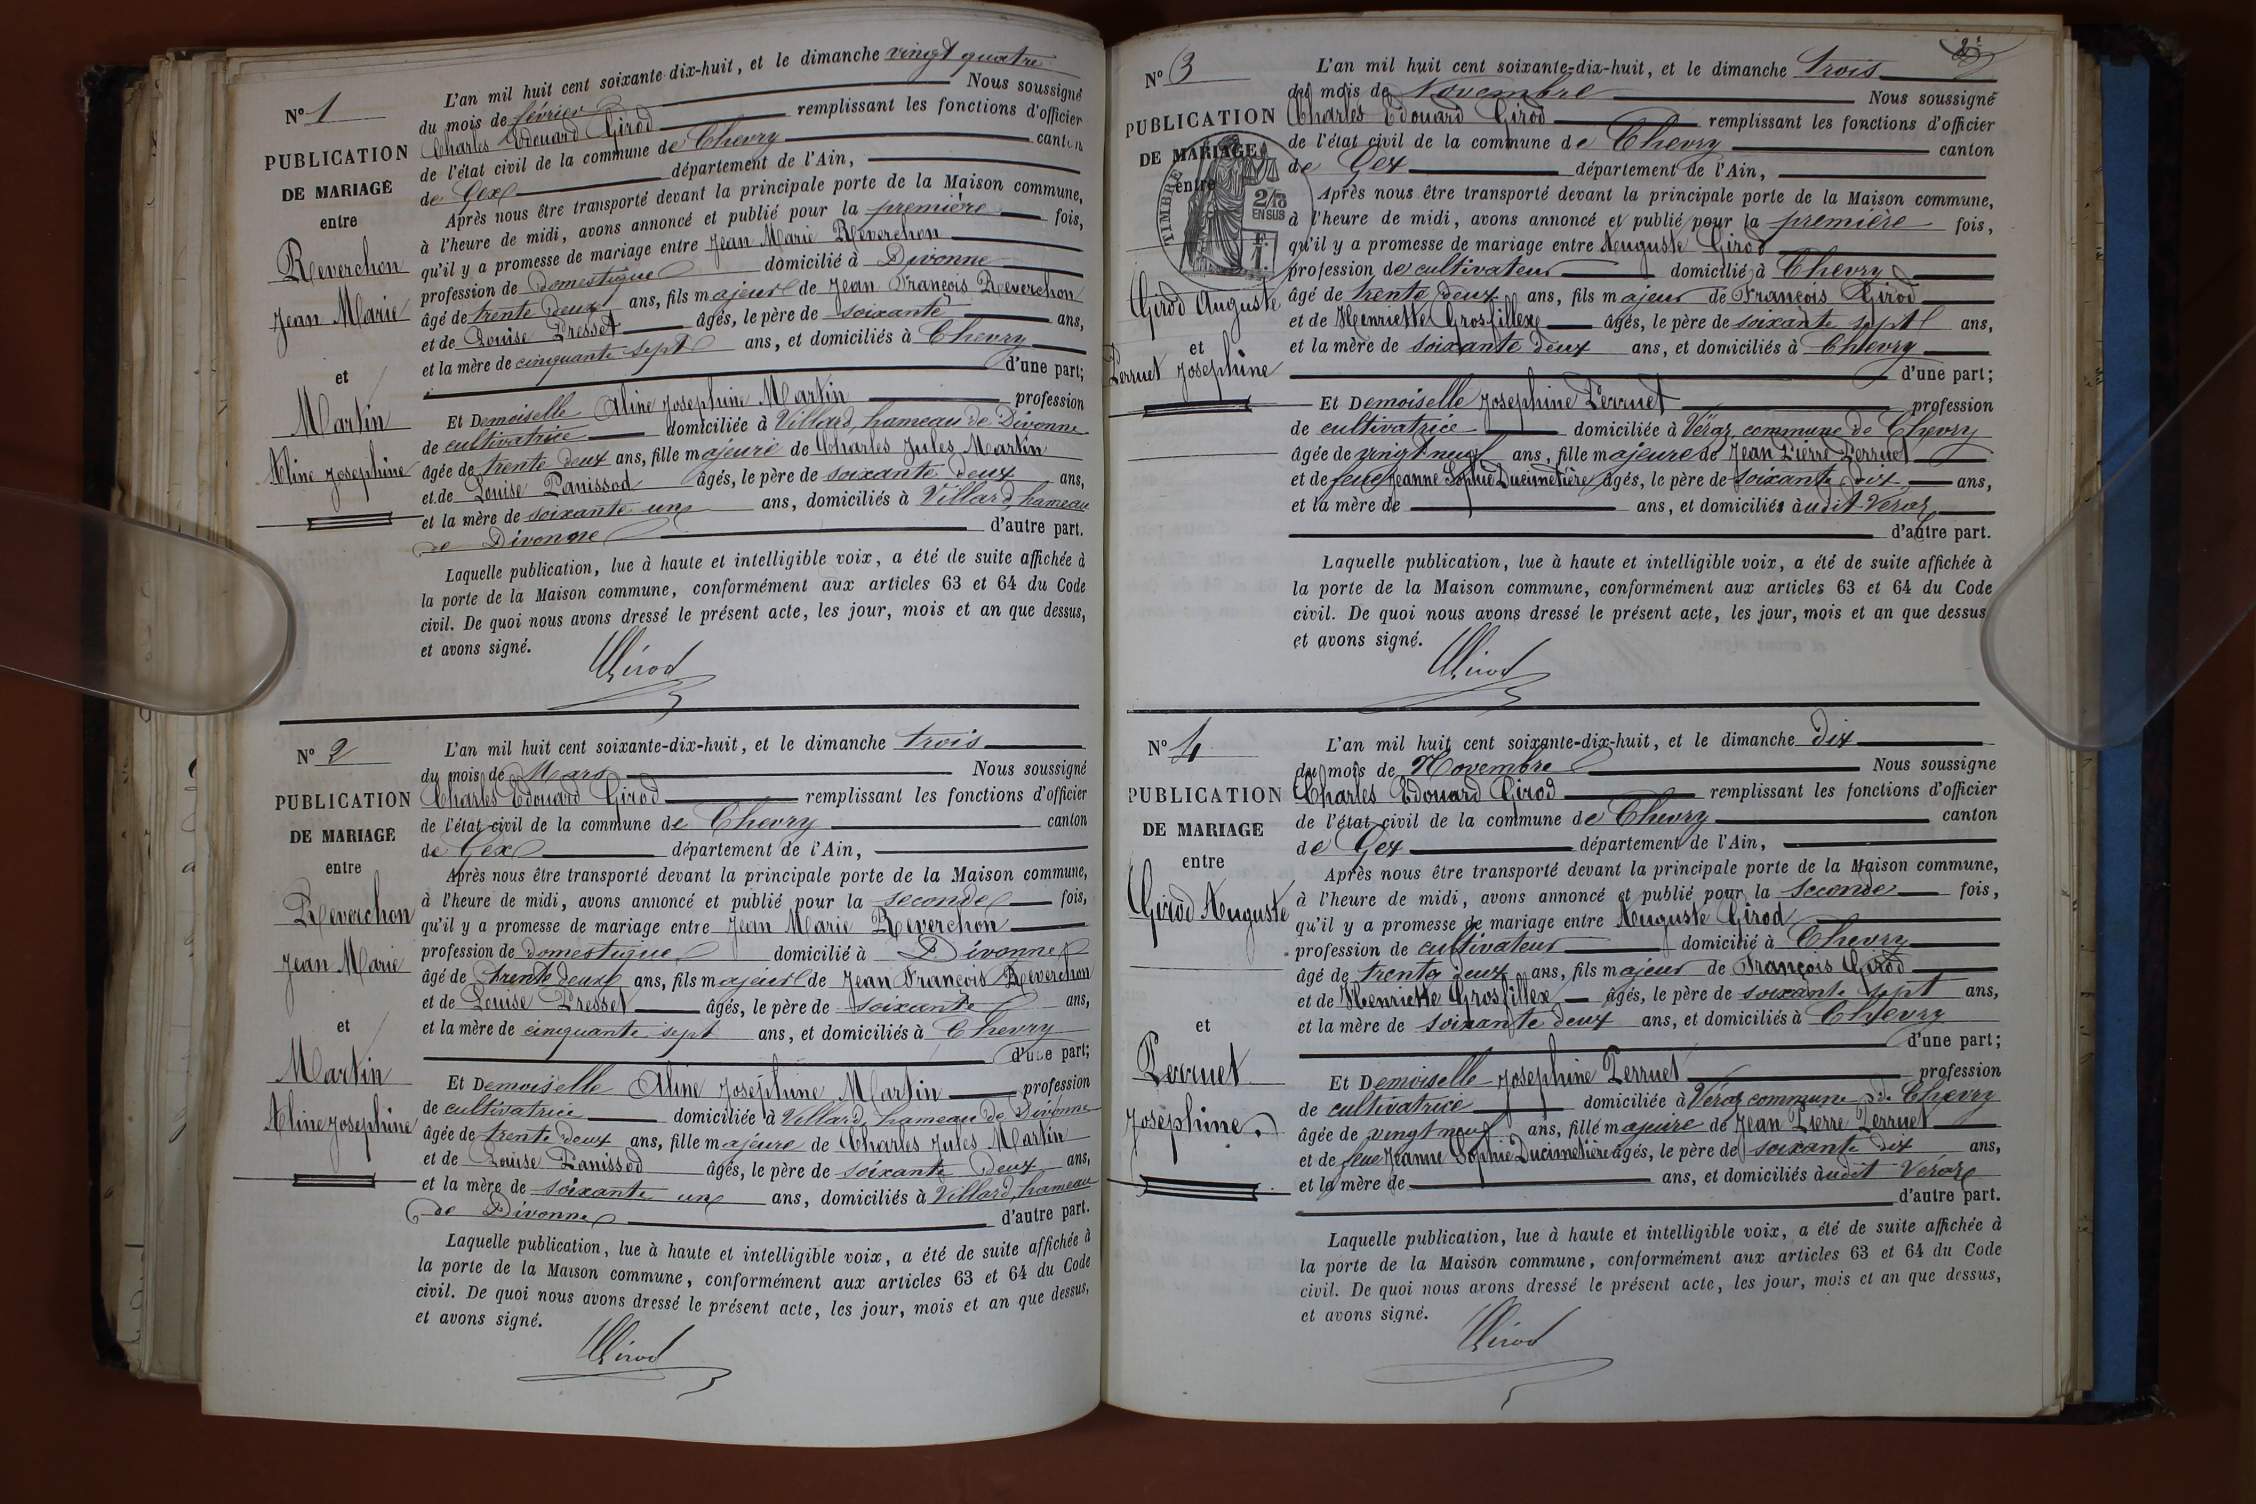 N° 1
PUBLICATION
DE MARIAGE
entre
Reverchon
Jean Marie
et
Martin
Aline Josephine
L'an mil huit cent soixante-dix-huit, et le dimanche vingt quatre
du mois de février Nous soussigné
Charles Edouard Girod remplissant les fonctions d'officier
de l'état civil de la commune de Chevry canton
de Gex département de l'Ain,
Après nous être transporté devant la principale porte de la Maison commune,
à l'heure de midi, avons annoncé et publié pour la première fois,
qu'il y a promesse de mariage entre Jean Marie Reverchon
profession de domestique domicilié à Divonne
âgé de trente deux ans, fils majeur de Jean François Reverchon
et de Louise Presset âgés, le père de soixante ans,
et la mère de cinquante sept ans, et domiciliés à Chevry
d'une part;
Et Demoiselle Aline Josephine Martin profession
de cultivatrice domiciliée à Villard, hameau de Divonne
âgée de trente deux ans, fille majeure de Charles Jules Martin
et de Louise Panissod âgés, le père de soixante deux ans,
et la mère de soixante un ans, domiciliés à Villard, hameau
de Divonne d'autre part.
Laquelle publication, lue à haute et intelligible voix, a été de suite affichée à
la porte de la Maison commune, conformément aux articles 63 et 64 du Code
civil. De quoi nous avons dressé le présent acte, les jour, mois et an que dessus,
et avons signé.
Girod
N° 2
PUBLICATION
DE MARIAGE
entre
Reverchon
Jean Marie
et
Martin
Aline Josephine
L'an mil huit cent soixante-dix-huit, et le dimanche trois
du mois de Mars Nous soussigné
Charles Edouard Girod remplissant les fonctions d'officier
de l'état civil de la commune de Chevry canton
de Gex département de l'Ain,
Après nous être transporté devant la principale porte de la Maison commune,
à l'heure de midi, avons annoncé et publié pour la seconde fois,
qu'il y a promesse de mariage entre Jean Marie Reverchon
profession de domestique domicilié à Divonne
âgé de trente deux ans, fils majeur de Jean François Reverchon
et de Louise Presset âgés, le père de soixante ans,
et la mère de cinquante sept ans, et domiciliés à Chevry
d'une part;
Et Demoiselle Aline Josephine Martin profession
de cultivatrice domiciliée à Villard, hameau de Divonne
âgée de trente deux ans, fille majeure de Charles Jules Martin
et de Louise Panissod âgés, le père de soixante deux ans,
et la mère de soixante un ans, domiciliés à Villard, hameau
de Divonne d'autre part.
Laquelle publication, lue à haute et intelligible voix, a été de suite affichée à
la porte de la Maison commune, conformément aux articles 63 et 64 du Code
civil. De quoi nous avons dressé le présent acte, les jour, mois et an que dessus,
et avons signé.
Girod
N° 3
PUBLICATION
DE MARIAGE
entre
TIMBRE
2/10
EN SUS
Girod Auguste
et
Perruet Josephine
L'an mil huit cent soixante-dix-huit, et le dimanche trois
du mois de Novembre Nous soussigné
Charles Edouard Girod remplissant les fonctions d'officier
de l'état civil de la commune de Chevry canton
de Gex département de l'Ain,
Après nous être transporté devant la principale porte de la Maison commune,
à l'heure de midi, avons annoncé et publié pour la première fois,
qu'il y a promesse de mariage entre Auguste Girod
profession de cultivateur domicilié à Chevry
âgé de trente deux ans, fils majeur de François Girod
et de Henriette Grosfillex âgés, le père de soixante sept ans,
et la mère de soixante deux ans, et domiciliés à Chevry
d'une part;
Et Demoiselle Josephine Perruet profession
de cultivatrice domiciliée à Véraz commune de Chevry
âgée de vingt neuf ans, fille majeure de Jean Pierre Perruet
et de feue Jeanne Sophie Ducimetière âgés, le père de soixante dix ans,
et la mère de ans, et domiciliés audit Véraz
d'autre part.
Laquelle publication, lue à haute et intelligible voix, a été de suite affichée à
la porte de la Maison commune, conformément aux articles 63 et 64 du Code
civil. De quoi nous avons dressé le présent acte, les jour, mois et an que dessus
et avons signé.
Girod
N° 4
PUBLICATION
DE MARIAGE
entre
Girod Auguste
et
Perruet
Josephine
L'an mil huit cent soixante-dix-huit, et le dimanche dix
du mois de Novembre Nous soussigné
Charles Edouard Girod remplissant les fonctions d'officier
de l'état civil de la commune de Chevry canton
de Gex département de l'Ain,
Après nous être transporté devant la principale porte de la Maison commune,
à l'heure de midi, avons annoncé et publié pour la seconde fois,
qu'il y a promesse de mariage entre Auguste Girod
profession de cultivateur domicilié à Chevry
âgé de trente deux ans, fils majeur de François Girod
et de Henriette Grosfillex âgés, le père de soixante sept ans,
et la mère de soixante deux ans, et domiciliés à Chevry
d'une part;
Et Demoiselle Josephine Perruet profession
de cultivatrice domiciliée à Véraz commune de Chevry
âgée de vingt neuf ans, fille majeure de Jean Pierre Perruet
et de feue Jeanne Sophie Ducimetière âgés, le père de soixante dix ans,
et la mère de ans, et domiciliés audit Véraz
d'autre part.
Laquelle publication, lue à haute et intelligible voix, a été de suite affichée à
la porte de la Maison commune, conformément aux articles 63 et 64 du Code
civil. De quoi nous avons dressé le présent acte, les jour, mois et an que dessus,
et avons signé.
Girod